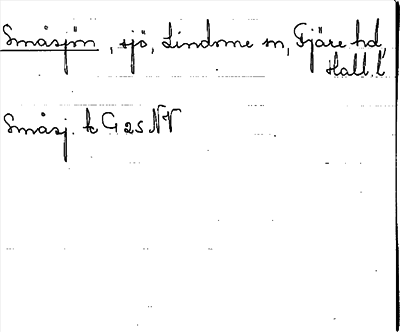 Småsjön, sjö, Lindome sn, Fjäre hd,
Hall. l
Småsj. k G 25 NV